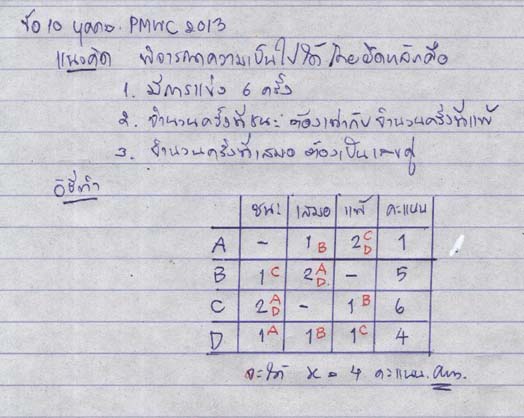 ข้อ 10 บุคคล. PMWC 2013
แนวคิด พิจารณาความเป็นไปได้ โดยยึดหลักคือ
1. มีการแข่ง 6 ครั้ง
2. จำนวนครั้งที่ชนะ ต้องเท่ากับ จำนวนครั้งที่แพ้
3. จำนวนครั้งที่เสมอ ต้องเป็นเลขคู่
วิธีทำ
ชนะ เสมอ แพ้ คะแนน
A - 1 B 2 C D 1
B 1 C 2 A D - 5
C 2 A D - 1 B 6
D 1 A 1 B 1 C 4
จะได้ x = 4 คะแนน. Ans.